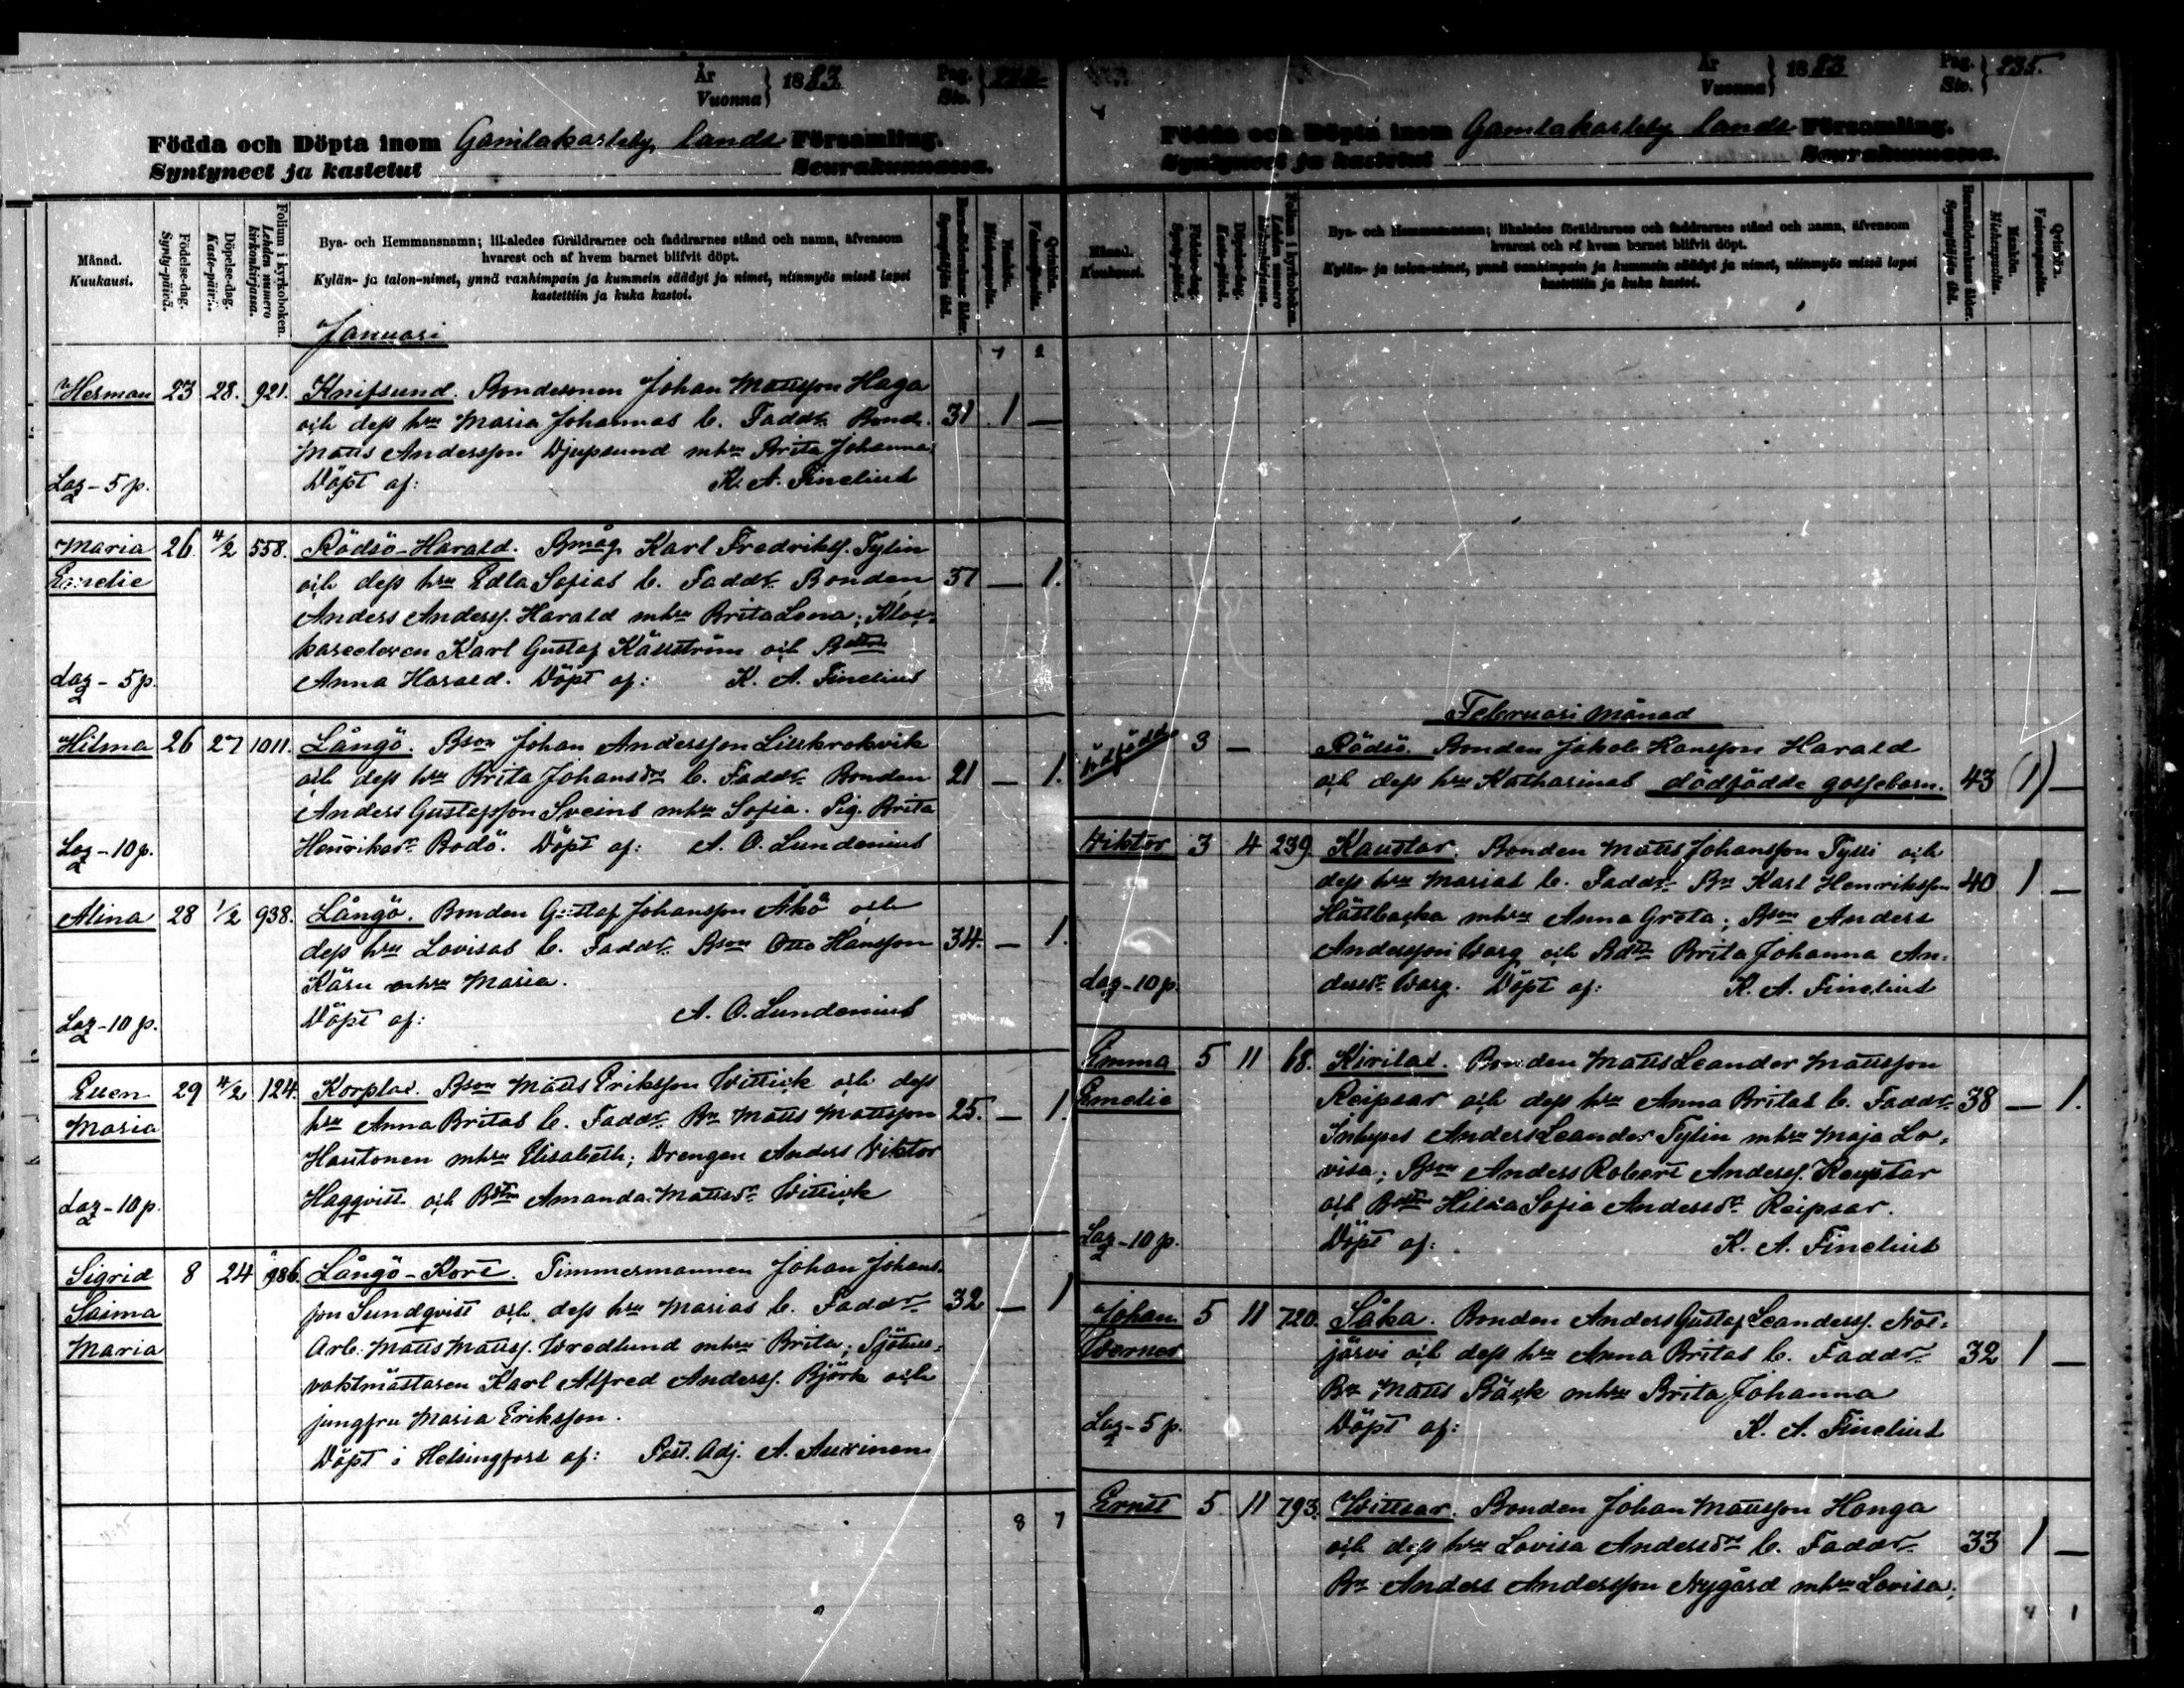 År
Vuonna } 1883
Pag.
Siv. }
Födda och Döpta inom Gamlakarleby lands Församling.
Syntyneet ja kastetut Seurakunnassa.
Månad.
Kuukausi.
Födelse-dag.
Synty-päivä.
Döpelse-dag.
Kaste-päivä.
Folium i kyrkoboken.
Lehden numero kirkonkirjassa.
Bya- och Hemmansnamn; likaledes föräldrarnes och faddrarnes stånd och namn, äfvensom
hvarest och af hvem barnet blifvit döpt.
Kylän- ja talon-nimet, ynnä vanhimpain ja kummein säädyt ja nimet, niinmyös missä lapsi
kastettiin ja kuka kastoi.
Barnaföderskans ålder.
Synnyttäjän ikä.
Mankön.
Miehenpuolta.
Qvinkön.
Vaimonpuolta.
Januari
7 2
Herman 23 28. 921. Knifsund. Bondesonen Johan Mattsson Haga
och dess hru Maria Johannas b. Faddr. Bond. 31 1 —
Matts Andersson Djupsund m hru Brita Johanna
Laz - 5 p. Döpt af: K. A. Finelius
Maria 26. 4/2 558. Rödsö-Harald. Bmåg Karl Fredrikss. Tylin
Emelie och dess hru Edla Sofias b. Faddr. Bonden 37 — 1.
Anders Anderss. Harald m hru Brita Lena; Kloc-
kareeleven Karl Gustaf Källström och Bdttrn
laz - 5 p. Anna Harald. Döpt af: K. A. Finelius
Hilma 26 27 1011. Långö. Bson Johan Andersson Lillkrokvik
och dess hru Brita Johansdrs b. Faddr. Bonden 21 — 1.
Anders Gustafsson Sveins m hru Sofia. Pig. Brita
Laz - 10 p. Henriksdr. Bodö. Döpt af: A. O. Lundenius
Alina 28 1/2 938. Långö. Bonden Gustaf Johansson Åkö och
dess hru Lovisas b. Faddr. Bson Otto Hansson 34. — 1.
Käru m hru Maria.
Laz - 10 p. Döpt af: A. O. Lundenius
Ellen 29 4/2 124. Korplax. Bson Matts Eriksson Wittick och dess
Maria hru Anna Britas b. Faddr. Bn Matts Mattsson 25. — 1.
Hautonen m hru Elisabeth; Drengen Anders Viktor
laz - 10 p. Haqqvist och Bdttrn Amanda Mattsdr. Wittick
Sigrid 8 24 986. Långö-Kort. Timmermannen Johan Johans-
Saima son Sundqvist och dess hru Marias b. Faddr. 32 — 1
Maria Arb. Matts Matss. Wredlund m hru Brita; Sjöhus-
vaktmästaren Karl Alfred Anderss. Björk och
jungfru Maria Eriksson.
Döpt i Helsingfors af: Past. Adj. A. Auvinen
8 7
År
Vuonna } 1883
Pag.
Siv. } 235.
Födda och Döpta inom Gamlakarleby lands Församling.
Syntyneet ja kastetut Seurakunnassa.
Månad.
Kuukausi.
Födelse-dag.
Synty-päivä.
Döpelse-dag.
Kaste-päivä.
Folium i kyrkoboken.
Lehden numero kirkonkirjassa.
Bya- och Hemmansnamn; likaledes föräldrarnes och faddrarnes stånd och namn, äfvensom
hvarest och af hvem barnet blifvit döpt.
Kylän- ja talon-nimet, ynnä vanhimpain ja kummein säädyt ja nimet, niinmyös missä lapsi
kastettiin ja kuka kastoi.
Barnaföderskans ålder.
Synnyttäjän ikä.
Mankön.
Miehenpuolta.
Qvinkön.
Vaimonpuolta.
Februari månad
dödfödde 3 — Rödsö. Bonden Jakob Hansson Harald
och dess hru Katharinas dödfödde gossebarn. 43 (1) —
Viktor 3 4 239. Kaustar. Bonden Matts Johansson Tylli och
dess hru Marias b. Faddr. Bn Karl Henriksson 40 1 —
Hästbacka m hru Anna Greta; Bson Anders
Andersson Warg och Bdttr Brita Johanna An-
laz - 10 p. dersdr. Warg. Döpt af: K. A. Finelius
Emma 5 11 68. Kirilax. Bonden Matts Leander Mattsson
Emelie Reipsar och dess hru Anna Britas b. Faddr. 38 — 1.
Inhyses Anders Leander Tylin m hru Maja Lo-
visa; Bson Anders Robert Anderss. Keustar
och Bdttrn Hilda Sofia Andersdr. Reipsar.
Laz - 10 p. Döpt af: K. A. Finelius
Johan 5 11 720. Såka. Bonden Anders Gustaf Leanderss. Not-
Werner järvi och dess hru Anna Britas b. Faddr. 32 1 —
Bn Matts Bäck m hru Brita Johanna
Laz - 5 p. Döpt af: K. A. Finelius
Ernst 5 11 793. Wittsar. Bonden Johan Mattsson Honga
och dess hru Lovisa Andersdrs b. Faddr. 33 1 —
Bn Anders Andersson Nygård m hru Lovisa;
4 1